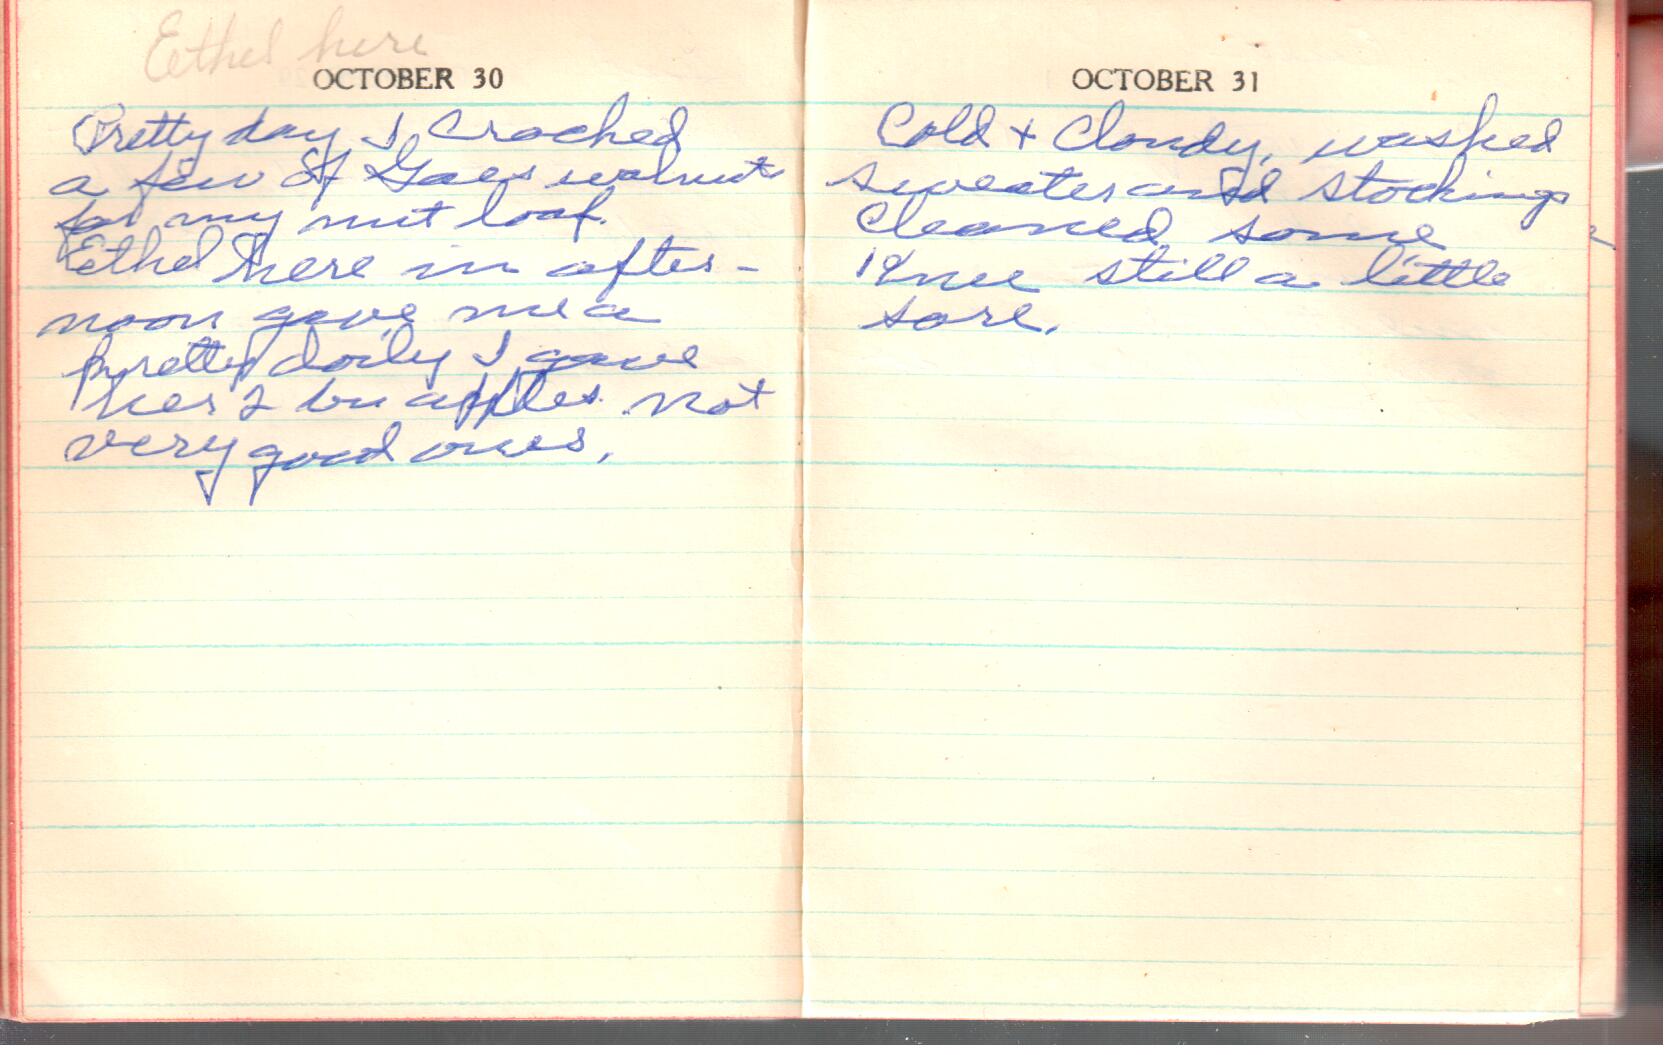 Ethel here
OCTOBER 30
Pretty day I Crached
a few of Gaes walnuts
for my nut loaf.
Ethel here in after-
noon gave me a
pretty doily I gave
her 2 bu apples. not
very good ones.
OCTOBER 31
Cold + Cloudy, washed
sweater and stockings
Cleaned some
Knee still a little
sore.